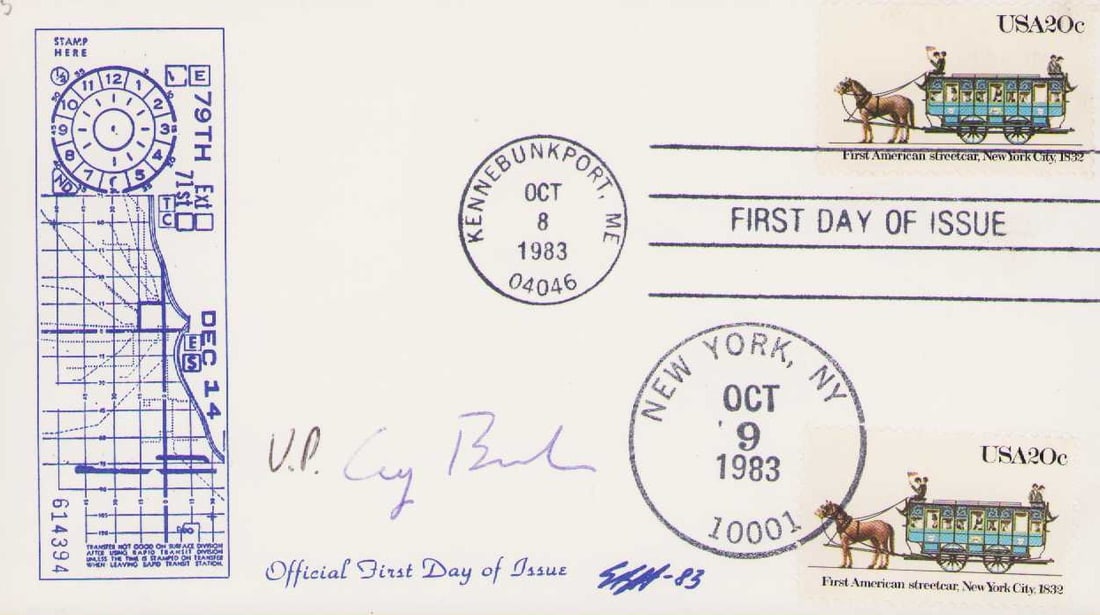 STAMP
HERE
12
1
2
3
4
5
7
8
9
10
11
E
79TH
71st
Ext
T
C
DEC 14
E
S
614394
TRANSFER NOT GOOD ON SURFACE DIVISION
AFTER USING RAPID TRANSIT DIVISION
UNLESS THE TIME IS STAMPED ON TRANSFER
WHEN LEAVING RAPID TRANSIT STATION.
USA20c
First American streetcar, New York City, 1832
KENNEBUNKPORT, ME
OCT
8
1983
04046
FIRST DAY OF ISSUE
NEW YORK, NY
OCT
9
1983
10001
V.P.
USA20c
First American streetcar, New York City, 1832
Official First Day of Issue
-83